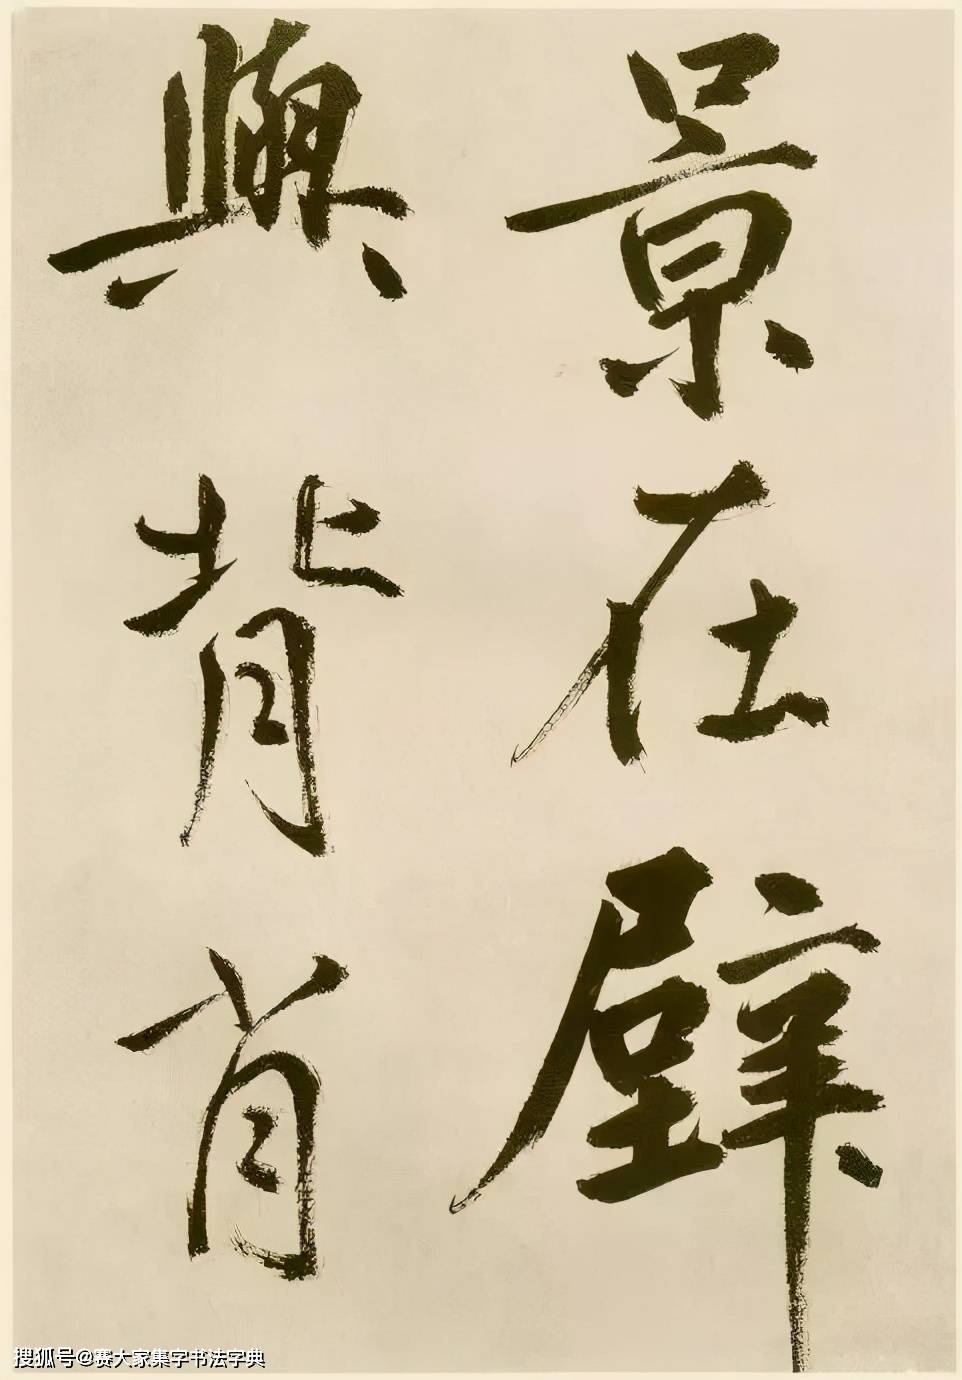 景在壁
與背肖
搜狐号@赛大家集字书法字典